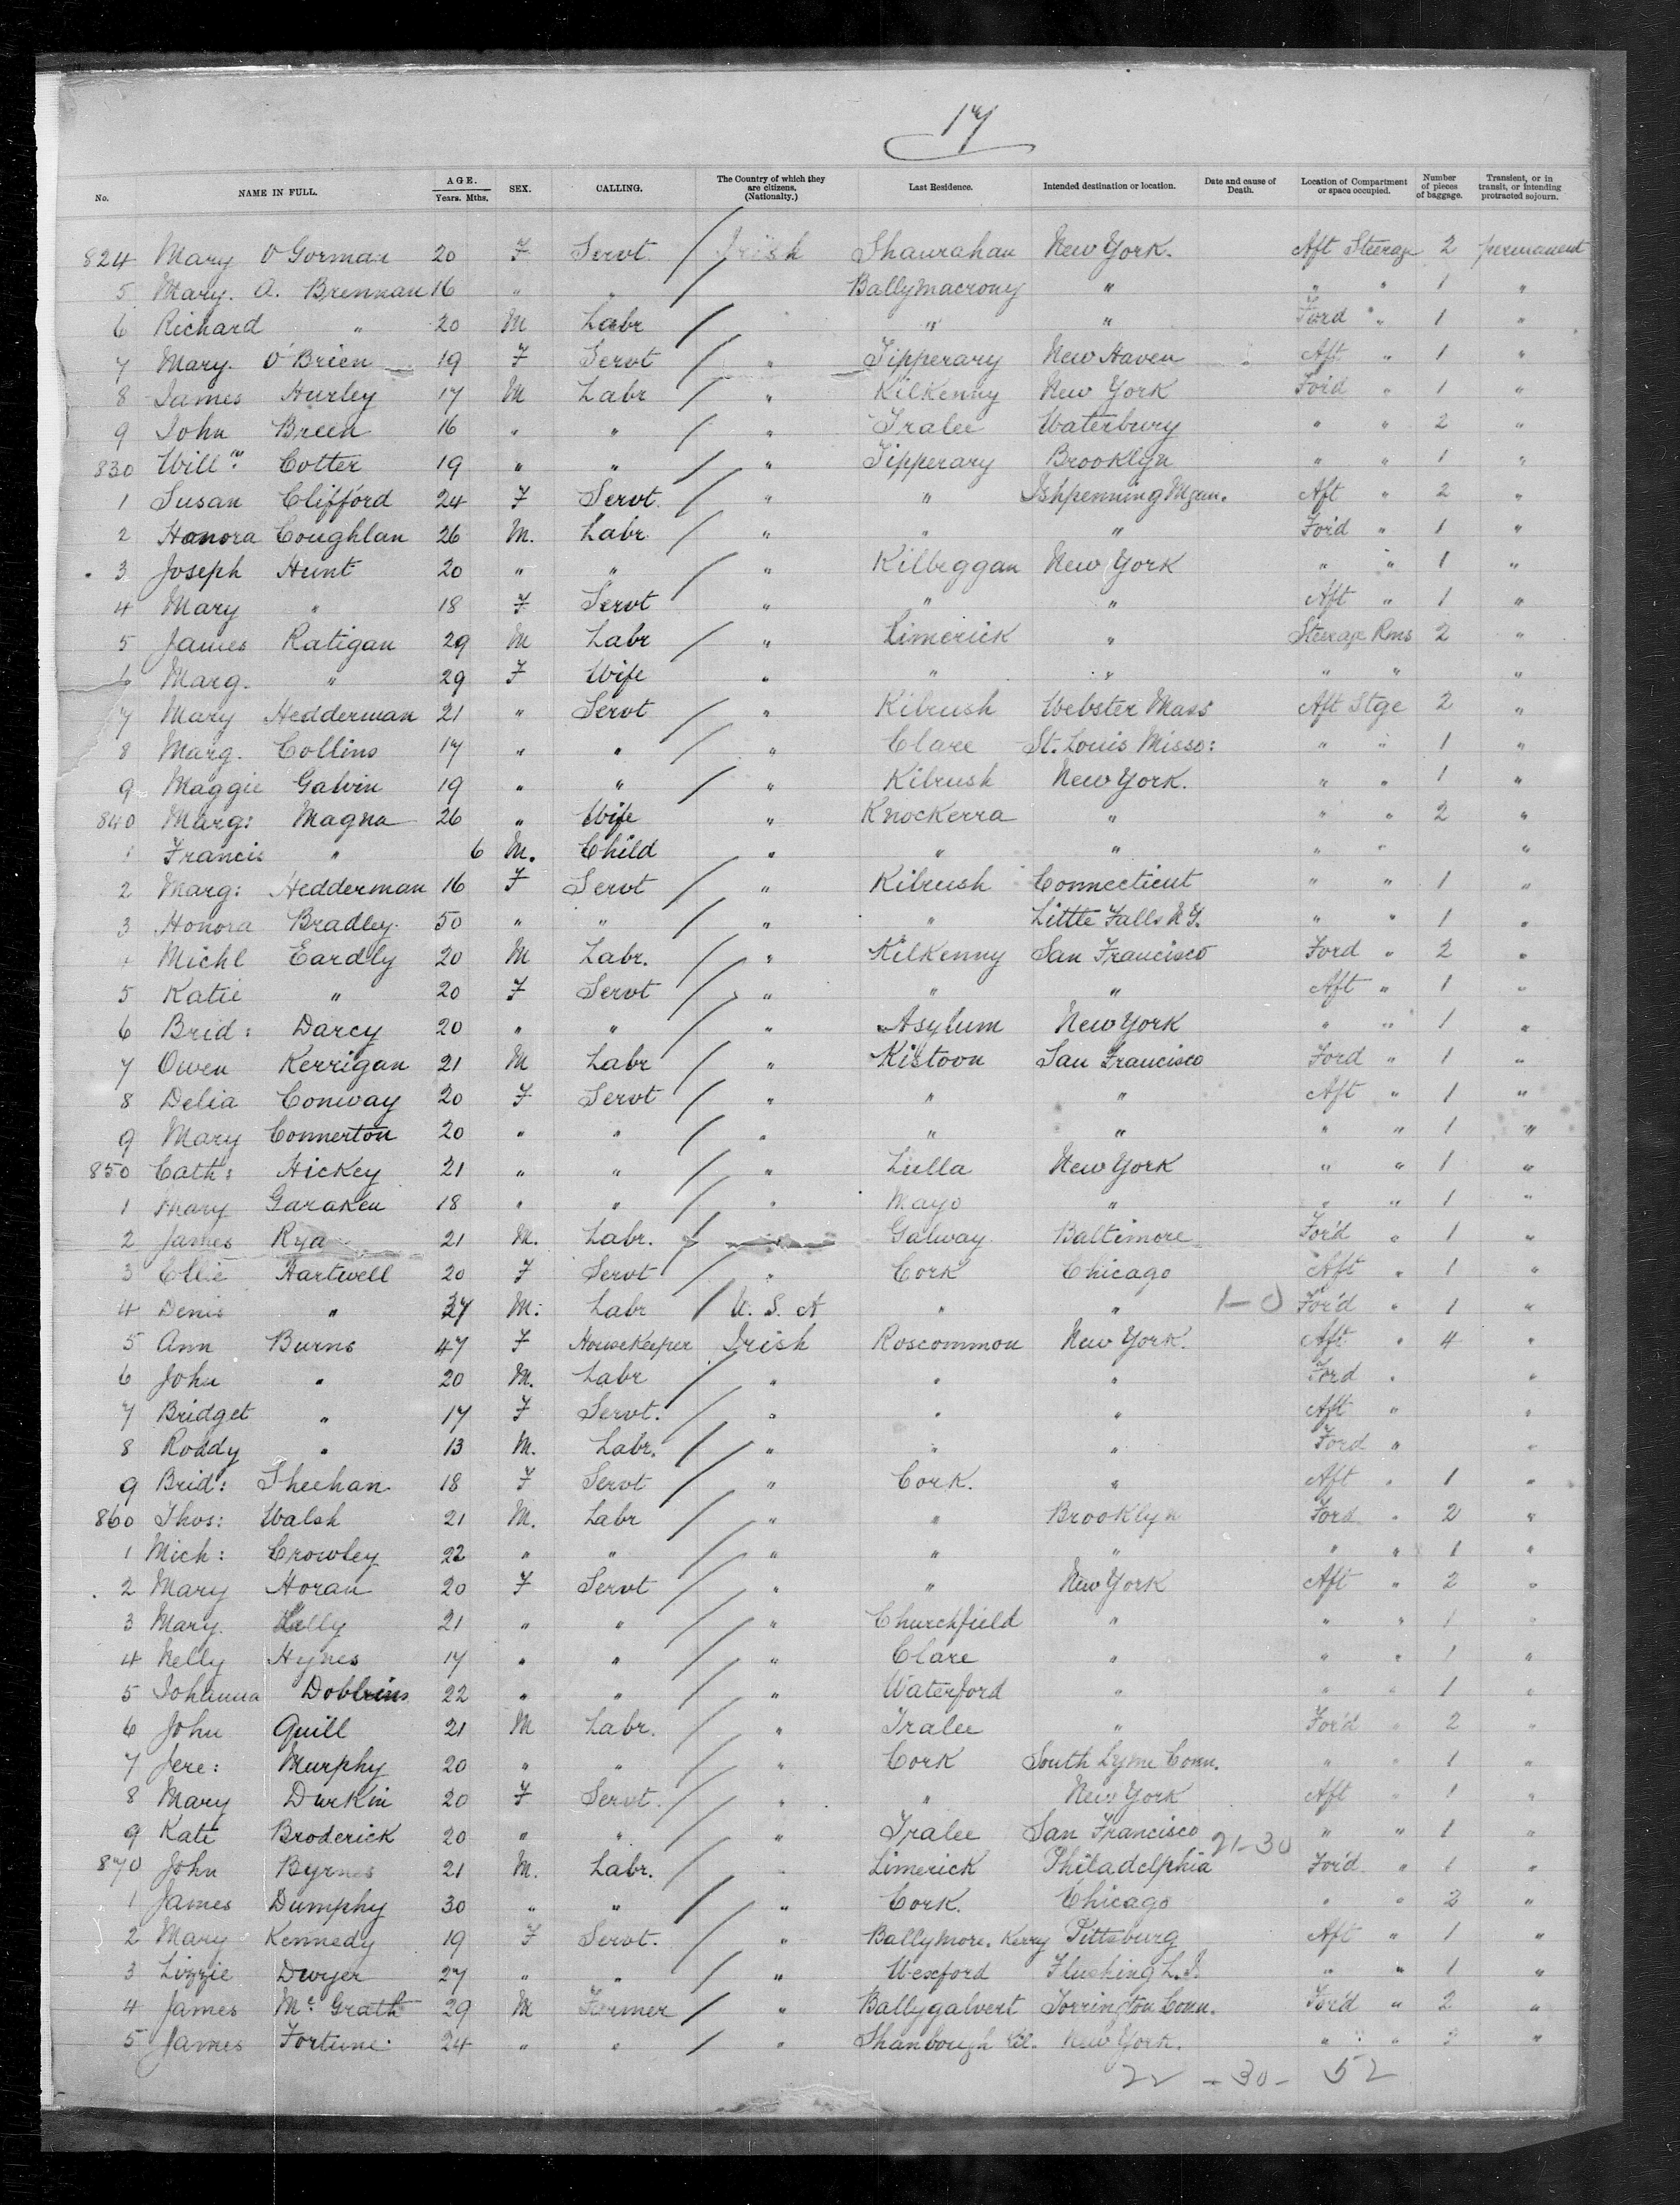 17
No. NAME IN FULL. AGE. Years. Mths. SEX. CALLING. The Country of which they are citizens, (Nationality.) Last Residence. Intended destination or location. Date and cause of Death. Location of Compartment or space occupied. Number of pieces of baggage. Transient, or in transit, or intending protracted sojourn.
824 Mary O'Gorman 20 F Servt Irish Shanrahan New York. Aft Steerage 2 permanent
5 Mary. A. Brennan 16 " " Ballymacrony " " " 1 "
6 Richard " 20 M Labr " " Ford " 1 "
7 Mary. O'Brien 19 F Servt " Tipperary New Haven Aft " 1 "
8 James Hurley 17 M Labr " Kilkenny New York For'd " 1 "
9 John Breen 16 " " " Tralee Waterbury " " 2 "
830 Willm. Cotter 19 " " " Tipperary Brooklyn " " 1 "
1 Susan Clifford 24 F Servt. " " Ishpenning Mgan. Aft " 2 "
2 Honora Coughlan 26 M. Labr. " " " For'd " 1 "
3 Joseph Hunt 20 " " " Kilbeggan New York " " 1 "
4 Mary " 18 F Servt " " " Aft " 1 "
5 James Ratigan 29 M Labr " Limerick " Steerage Rms 2 "
6 Marg. " 29 F Wife " " " " " "
7 Mary Hedderman 21 " Servt " Kilrush Webster Mass Aft Stge 2 "
8 Marg. Collins 17 " " " Clare St. Louis Misso: " " 1 "
9 Maggie Galvin 19 " " " Kilrush New York. " " 1 "
840 Marg: Magna 26 " Wife " Knockerra " " " 2 "
1 Francis " 6 M. Child " " " " " "
2 Marg: Hedderman 16 F Servt " Kilrush Connecticut " " 1 "
3 Honora Bradley. 50 " " " " Little Falls N.Y. " " 1 "
4 Michl Eardly 20 M Labr. " Kilkenny San Francisco Ford " 2 "
5 Katie " 20 F Servt " " " Aft " 1 "
6 Brid: Darcy 20 " " " Asylum New York " " 1 "
7 Owen Kerrigan 21 M Labr " Kistoon San Francisco Ford " 1 "
8 Delia Conway 20 F Servt " " " Aft " 1 "
9 Mary Connerton 20 " " " " " " " 1 "
850 Cath: Hickey 21 " " " Lulla New York " " 1 "
1 Mary Garaken 18 " " " Mayo " " " 1 "
2 James Rya 21 M. Labr. Galway Baltimore For'd " 1 "
3 Ellie Hartwell 20 F Servt " Cork Chicago Aft " 1 "
4 Denis " 37 M: Labr U. S. A " " 1-0 For'd " 1 "
5 Ann Burns 47 F HouseKeeper Irish Roscommon New York. Aft " 4 "
6 John " 20 M. Labr " " " Ford " "
7 Bridget " 17 F Servt. " " " Aft " "
8 Roddy " 13 M. Labr. " " " Ford " "
9 Brid: Sheehan. 18 F Servt " Cork. " Aft " 1 "
860 Thos: Walsh 21 M. Labr " " Brooklyn Ford " 2 "
1 Mich: Crowley 22 " " " " " " " 1 "
2 Mary Horan 20 F Servt " " New York Aft " 2 "
3 Mary. Kelly 21 " " " Churchfield " " " 1 "
4 Nelly Hynes 17 " " " Clare " " " 1 "
5 Johanna Dobbins 22 " " " Waterford " " " 1 "
6 John Quill 21 M Labr. " Tralee " For'd " 2 "
7 Jere: Murphy 20 " " " Cork South Lyme Conn. " " 1 "
8 Mary Durkin 20 F Servt. " " New York Aft " 1 "
9 Kate Broderick 20 " " " Tralee San Francisco 21-30 " " 1 "
870 John Byrnes 21 M. Labr. " Limerick Philadelphia For'd " 1 "
1 James Dumphy 30 " " " Cork. Chicago " " 2 "
2 Mary Kennedy 19 F Servt. " Ballymore. Kerry Pittsburg Aft " 1 "
3 Lizzie Dwyer 27 " " " Wexford Flushing L.I. " " 1 "
4 James Mc. Grath 29 M Farmer " Ballygalvert Torrington Conn. For'd " 2 "
5 James Fortune. 24 " " " Shanbough Kil. New York. " " 2 "
22 - 30 - 52